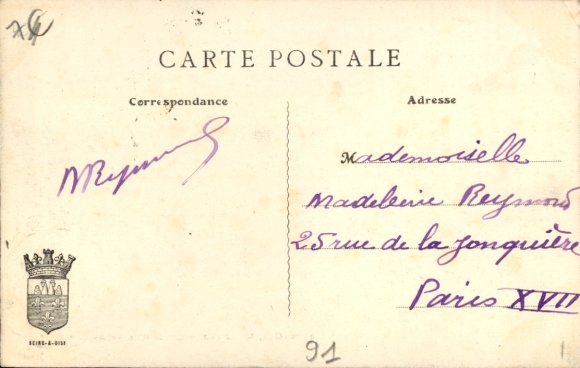 CARTE POSTALE
Correspondance
Adresse
Mademoiselle
Madeleine Reymond
25 rue de la Jonquière
Paris XVII
MReymond
SEINE-&-OISE
91